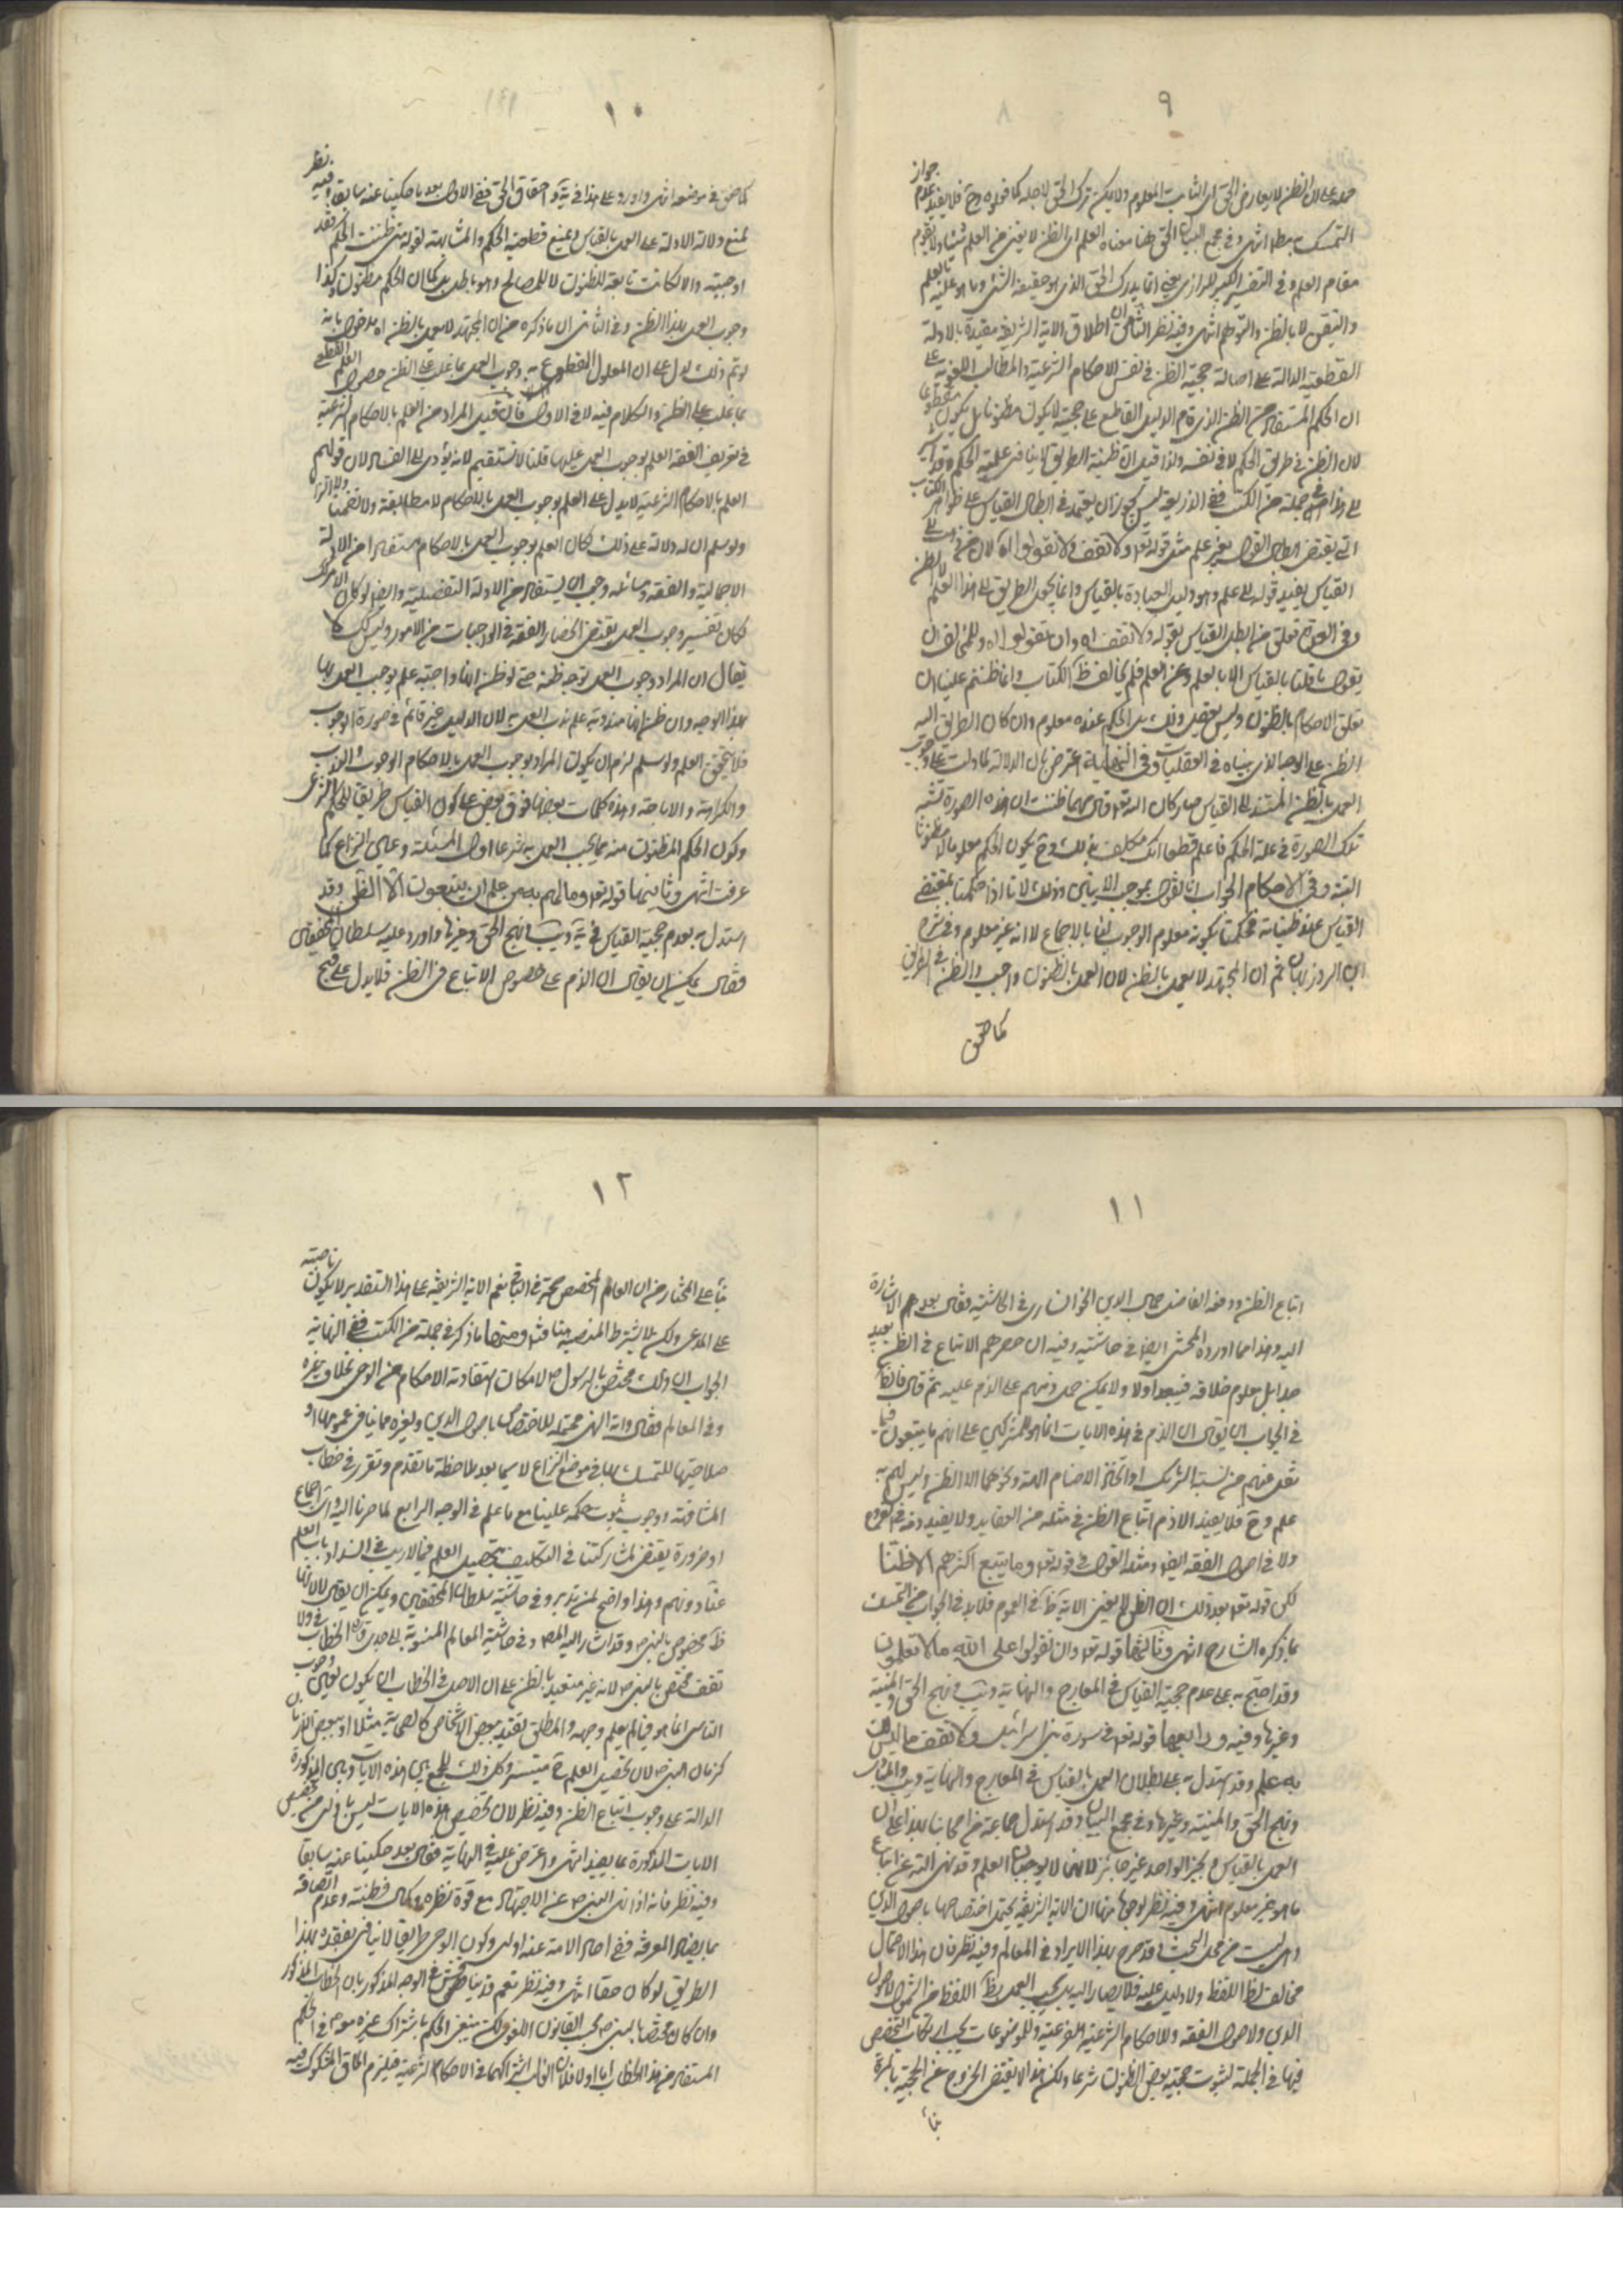 ٩
حمله على ان الظن لا يعارض الحق اى الثابت المعلوم ولا يمكن ترك الحق لاجله كما قوله وح فلا يفيد عدم جواز
التمسك به مطلقا انتهى وفى مجمع البيان الحق هنا معناه العلم اى الظن لا يغنى من العلم شيئا ولا يقوم
مقام العلم وفى التفسير الكبير للرازى يعنى انما يدرك الحق الذى هو حقيقة الشئ وما هو عليه بالعلم
والتيقن لا بالظن والتوهم انتهى وفيه نظر الثامن ان اطلاق الاية الشريفة مقيدة بالادلة
القطعية الدالة على اصالة حجية الظن فى نفس الاحكام الشرعية والمطالب اللغوية على
ان الحكم المستفاد من الظن الذى قام الدليل القاطع على حجيته لا يكون مظنونا بل يكون مقطوعا
لان الظن فى طريق الحكم لا فى نفسه ولذا قيل ان ظنية الطريق لا ينافى علمية الحكم وقد
الى هذا فى جملة من الكتب ففى الذريعة ليس يجوز ان يعتمد فى ابطال القياس على ظواهر الكتاب
التى يقتضى ابطال القول بغير علم مثل قوله تعالى ولا تقف ولا تقولوا
القياس يفيد قوله الى علم وهو دليل العبادة بالقياس وانما يجعل الطريق الى هذا العلم الظن
وفى العدة تعلق من ابطل القياس بقوله ولا تقف اه وان تقولوا اه وللمخالف ان
يقول ما قلنا بالقياس الا بالعلم وعن العلم فلم يخالف ظ الكتاب وانما ظننتم علينا ان
تعلق الاحكام بالظنون وليس يفعل ذلك بل الحكم عنده معلوم وان كان الطريق اليه
الظن على الوجه الذى بيناه فى العقليات وفى النهاية اعترض بان الدلالة لما دلت على وجوب
العمل بالظن المستند الى القياس صار كان الله تعالى قال مهما ظننت ان هذه الصورة تشبه
تلك الصورة فى علة الحكم فاعلم قطعا انك مكلف بذلك وح يكون الحكم معلوما لا مظنونا
البتة وفى الاحكام الجواب انا نقول بموجب الايتين وذلك لانا اذا حكمنا بمقتضى
القياس عند ظنيته فحكمنا بكونه معلوم الوجوب لنا بالاجماع لا انه غير معلوم وفى شرح
ثم ان المجتهد لا يعمل بالظن لان العمل بالظنون واجب والظن فى الطريق
كما حقق
١٠
كما حقق فى موضعه انتهى واورد على هذا فى احقاق الحق ففى الاول بعد ما حكينا عنه سابقا وفيه نظر
لمنع دلالة الادلة على العمل بالقياس ولمنع قطعية الحكم والمشابهة لقوله متى ظننت الحكم فقد
اوجبته والا لكانت تابعة للظنون لا للمصالح وهو باطل بل كما ان الحكم مظنون وكذا
وجوب العمل بهذا الظن وفى الثانى ان ما ذكره من ان المجتهد لا يعمل بالظن اه مدخول بانه
لو تم ذلك لدل على ان المعلول المقطوع به وجوب العمل بما غلب على الظن حصول العلم القطعى
بما غلب على الظن والكلام فيه لا فى الاول فان قيل المراد من العلم بالاحكام الشرعية
فى تعريف الفقه العلم بوجوب العمل عليها قلنا لا نستقيم لانه يؤدى الى الفساد لان قولهم
العلم بالاحكام الشرعية لا يدل على العلم بوجوب العمل بالاحكام لا مطابقة ولا تضمنا ولا التزاما
ولو سلم ان له دلالة على ذلك لكان العلم بوجوب العمل بالاحكام مستفادا من الادلة
الاجمالية والفقه وجب ان يستفاد من الادلة التفصيلية وايضا لو كان الامر كذلك
لكان تفسير وجوب العمل يقتضى انحصار الفقه فى الواجبات من الامور وليس كك لا
يقال ان المراد وجوب العمل توجه ظنه حتى لو ظن انها واجبة علم بوجوب العمل بها
بهذا الوجه وان ظن انها مندوبة علم ندب العمل لان الدليل غير قائم فى صورة الوجوب
فلا يتحقق العلم ولو سلم لزم ان يكون المراد بوجوب العمل بالاحكام الوجوب والندب
والكراهة والاباحة وهذه كلمات بعضها فوق بعض على كون القياس طريقا للحكم الشرعى
وكون الحكم المظنون منه مما يجب العمل به شرعا اول المسئلة وعلى النزاع كما
عرفت انتهى وثانيهما قوله تعالى وما لهم به من علم ان يتبعون الا الظن وقد
استدل به بعدم حجية القياس فى نهج الحق وغيرها واورد عليه سلطان المحققين
فقال يمكن ان يقال ان الذم على خصوص الاتباع من الظن فلا يدل على قبح
١١
اتباع الظن ودفعه الفاضل جمال الدين الخوانسارى فى الحاشية فقال بعد الاشارة
اليه وهذا مما اورده المحشى ايضا فى حاشيته وفيه ان حصرهم الاتباع فى الظن بعيد
جدا بل معلوم خلافه فيبعد اولا ولا يمكن حمل ذمهم على الذم عليه ثم قال
فى الجواب ان يقال ان الذم فى هذه الايات انما هو للمشركين على انهم ما يتبعون فيما
نقل عنهم من نسبة الشريك او اتخاذ الاصنام الهة ونحوهما الا الظن وليس لهم به
علم وح فلا يفيد الا ذم اتباع الظن فى مثله من العقايد ولا يفيد ذمه فى الفروع
ولا فى اصول الفقه ايضا ومثله القول فى قوله تعالى وما يتبع اكثرهم الا ظنا
لكن قوله تعالى بعد ذلك ان الظن لا يغنى الاية ظ فى العموم فلا بد فى الجواب من التمسك
بما ذكره الشارح انتهى وثالثها قوله تعالى وان تقولوا على الله ما لا تعلمون
وقد احتج به على عدم حجية القياس فى المعارج والنهاية ويب ونهج الحق والمنية
وغيرها وفيه ورابعها قوله تعالى فى سورة بنى اسرائيل ولا تقف ما ليس لك
به علم وقد استدل به على بطلان العمل بالقياس فى المعارج والنهاية ويب والمبادى
ونهج الحق والمنية وغيرها وفى مجمع البيان وقد استدل جماعة من اصحابنا بهذا على ان
العمل بالقياس وبخبر الواحد غير جائز لانهما لا يوجبان العلم وقد نهى الله عن اتباع
ما هو غير معلوم انتهى وفيه نظر لوجوه منها ان الاية الشريفة يحتمل اختصاصها باصول الدين
وليست من محل البحث وقد صرح بهذا الايراد فى المعالم وفيه نظر فان هذا الاحتمال
مخالف لظ اللفظ ولا دليل عليه فلا يصار اليه بل يجب العمل بظ اللفظ من الشمول لاصول
الدين ولاصول الفقه وللاحكام الشرعية الفرعية وللموضوعات يجب ارتكاب التخصيص
فيها فى الجملة لثبوت حجية بعض الظنون شرعا ولكن هذا لا يقتضى الخروج عن الحجية بالمرة
بناء
١٢
بناء على المختار من ان العام المخصص حجة فى الباقى نعم الاية الشريفة على هذا التقدير لا يكون ناصة
على المدعى ولكن لا يشترط النصية ومنها ما ذكر فى جملة من الكتب ففى النهاية
الجواب ان ذلك مختص بالرسول ص لامكان استفادته الاحكام من الوحى بخلاف غيره
وفى المعالم فقال واية النهى محتملة للاختصاص باصول الدين ولغيره مما ينافى عمومها او
صلاحيتها للتمسك بها فى موضع النزاع لا سيما بعد ملاحظة ما تقدم وتقرر فى خطاب
المشافهة ووجوب ثبوت حكمه علينا مع ما علم فى الوجه الرابع لما صرنا اليه واى اجماع
او ضرورة يقتضى لمشاركتنا فى التكليف بتحصيل العلم فيما لا ريب فى انسداد باب العلم
عنا دونهم وهذا واضح لمن تدبر وفى حاشية سلطان المحققين ويمكن ان يقال
ظ مخصوص بالنبى ص وقد اشار اليه المص وفى حاشية المعالم المنسوبة الى جدى ره الخطاب فى ولا
تقف مختص بالنبى ص لانه غير متعبد بالظن على ان الاصل فى الخطاب ان يكون
الناس انما هو فيما لم يعلم وجهه والمطلق يقيد ببعض الاشخاص كالصحابة مثلا او ببعض الازمان
كزمان النبى ص لان تحصيل العلم ح متيسر وكل ذلك للجمع بين هذه الايات وبين المذكورة
الدالة على وجوب اتباع الظن وفيه نظر لان تخصيص هذه الايات ليس باولى من تخصيص
الايات المذكورة بما يفيد انتهى واعترض عليه فى النهاية فقال بعد حكينا عنه سابقا
وفيه نظر فانه اذا نهى النبى ص عن الاجتهاد مع قوة نظره وكمال فطنته وعدم اتصافه
بما يضاد المعرفة ففى احاد الامة عنه اولى وكون الوحى طريقا لا ينافى تفقده بهذا
الطريق لو كان حقا انتهى وفيه نظر نعم قد يناقش فى الوجه المذكور بان الخطاب المذكور
وان كان مختصا بالنبى ص بحسب القانون اللغوى لكنه يتعين الحكم باشتراك غيره معه فى الحكم
المستفاد من هذا الخطاب اما اولا فلان الغالب اشتراكهما فى الاحكام الشرعية فيلزم الحاق المشكوك فيه